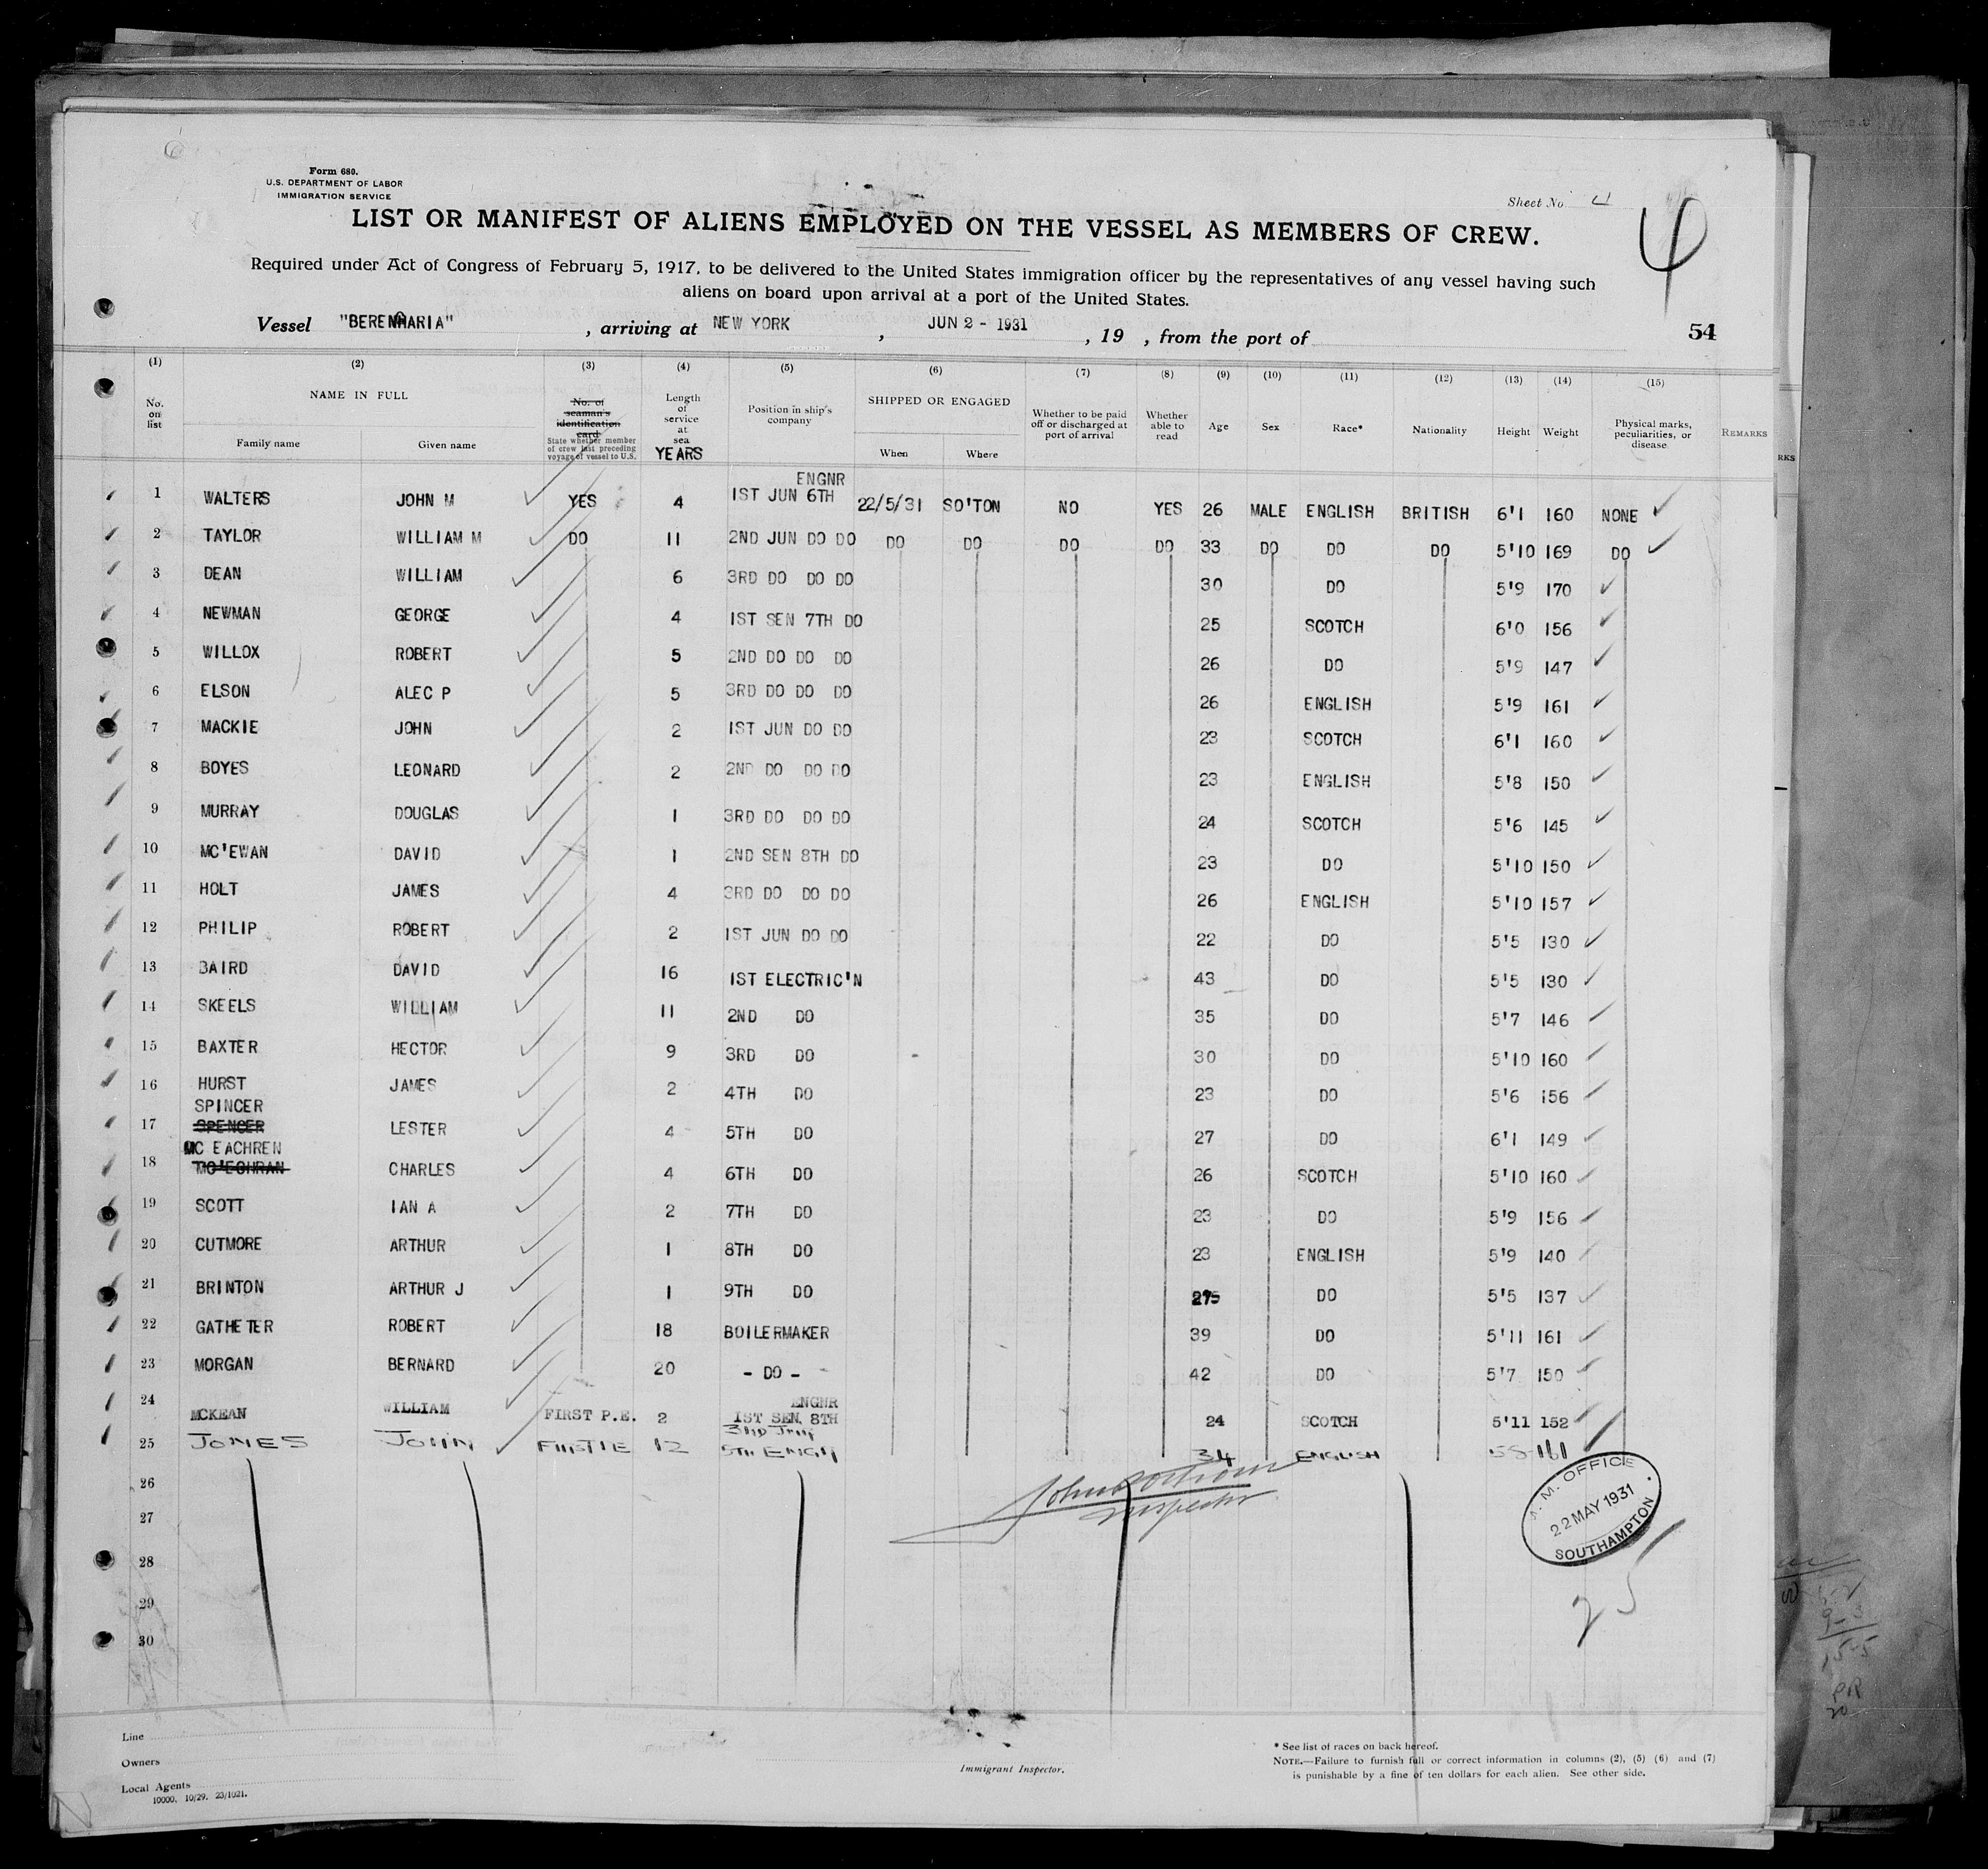 Form 680.
U.S. DEPARTMENT OF LABOR
IMMIGRATION SERVICE
Sheet No. 4
4
LIST OR MANIFEST OF ALIENS EMPLOYED ON THE VESSEL AS MEMBERS OF CREW.
Required under Act of Congress of February 5, 1917, to be delivered to the United States immigration officer by the representatives of any vessel having such
aliens on board upon arrival at a port of the United States.
Vessel "BERENGARIA", arriving at NEW YORK, JUN 2 - 1931, 19 , from the port of
54
(1) (2) (3) (4) (5) (6) (7) (8) (9) (10) (11) (12) (13) (14) (15)
No. on list NAME IN FULL Family name Given name No. of seaman's identification card State whether member of crew last preceding voyage of vessel to U.S. Length of service at sea YEARS Position in ship's company SHIPPED OR ENGAGED When Where Whether to be paid off or discharged at port of arrival Whether able to read Age Sex Race* Nationality Height Weight Physical marks, peculiarities, or disease REMARKS
RKS
ENGNR
1 WALTERS JOHN M YES 4 1ST JUN 6TH 22/5/31 SO'TON NO YES 26 MALE ENGLISH BRITISH 6'1 160 NONE
2 TAYLOR WILLIAM M DO 11 2ND JUN DO DO DO DO DO DO 33 DO DO DO 5'10 169 DO
3 DEAN WILLIAM 6 3RD DO DO DO 30 DO 5'9 170
4 NEWMAN GEORGE 4 1ST SEN 7TH DO 25 SCOTCH 6'0 156
5 WILLOX ROBERT 5 2ND DO DO DO 26 DO 5'9 147
6 ELSON ALEC P 5 3RD DO DO DO 26 ENGLISH 5'9 161
7 MACKIE JOHN 2 1ST JUN DO DO 23 SCOTCH 6'1 160
8 BOYES LEONARD 2 2ND DO DO DO 23 ENGLISH 5'8 150
9 MURRAY DOUGLAS 1 3RD DO DO DO 24 SCOTCH 5'6 145
10 MC'EWAN DAVID 1 2ND SEN 8TH DO 23 DO 5'10 150
11 HOLT JAMES 4 3RD DO DO DO 26 ENGLISH 5'10 157
12 PHILIP ROBERT 2 1ST JUN DO DO 22 DO 5'5 130
13 BAIRD DAVID 16 1ST ELECTRIC'N 43 DO 5'5 130
14 SKEELS WILLIAM 11 2ND DO 35 DO 5'7 146
15 BAXTER HECTOR 9 3RD DO 30 DO 5'10 160
16 HURST JAMES 2 4TH DO 23 DO 5'6 156
SPINCER
17 SPENCER LESTER 4 5TH DO 27 DO 6'1 149
MC EACHREN
18 MC'ECHRAN CHARLES 4 6TH DO 26 SCOTCH 5'10 160
19 SCOTT IAN A 2 7TH DO 23 DO 5'9 156
20 CUTMORE ARTHUR 1 8TH DO 23 ENGLISH 5'9 140
21 BRINTON ARTHUR J 1 9TH DO DO 5'5 137
22 GATHETER ROBERT 18 BOILERMAKER 39 DO 5'11 161
23 MORGAN BERNARD 20 - DO - 42 DO 5'7 150
ENGNR
24 MCKEAN WILLIAM FIRST P.E. 2 1ST SEN. 8TH 24 SCOTCH 5'11 152
25 JONES JOHN 12 5TH ENGR 34 ENGLISH 5'8 161
26
27
28
29
30
Inspector
M.M. OFFICE
22 MAY 1931
SOUTHAMPTON
25
Line
Owners
Local Agents
10000. 10/29. 23/1021.
Immigrant Inspector.
* See list of races on back hereof.
NOTE.—Failure to furnish full or correct information in columns (2), (5) (6) and (7)
is punishable by a fine of ten dollars for each alien. See other side.